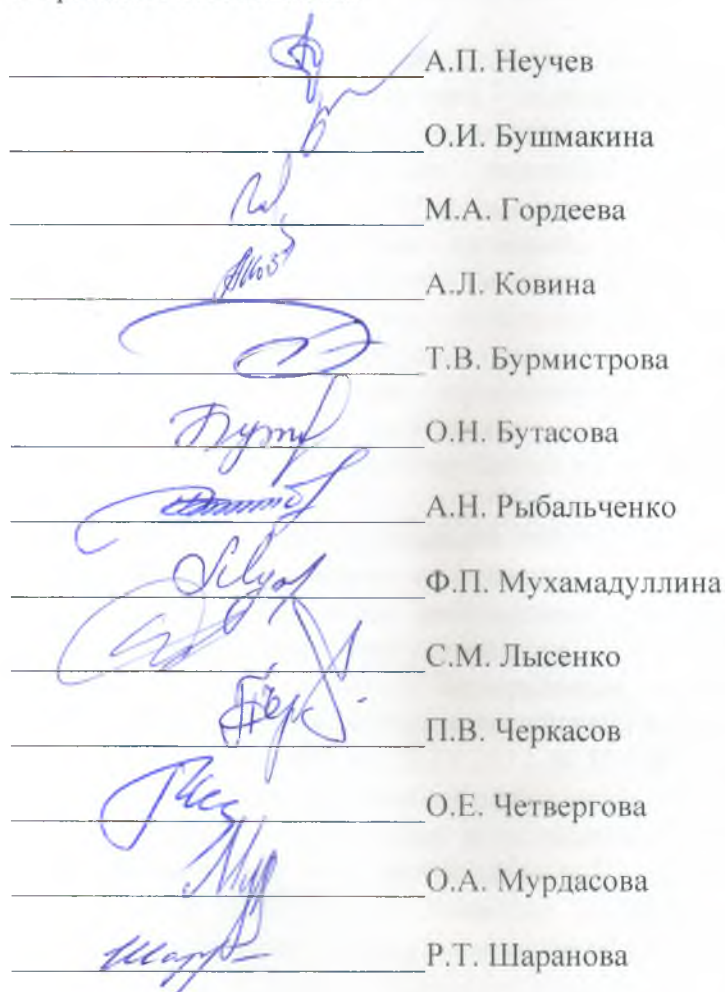 А.П. Неучев
О.И. Бушмакина
М.А. Гордеева
А.Л. Ковина
Т.В. Бурмистрова
О.Н. Бутасова
А.Н. Рыбальченко
Ф.П. Мухамадуллина
С.М. Лысенко
П.В. Черкасов
О.Е. Четвергова
О.А. Мурдасова
Р.Т. Шаранова